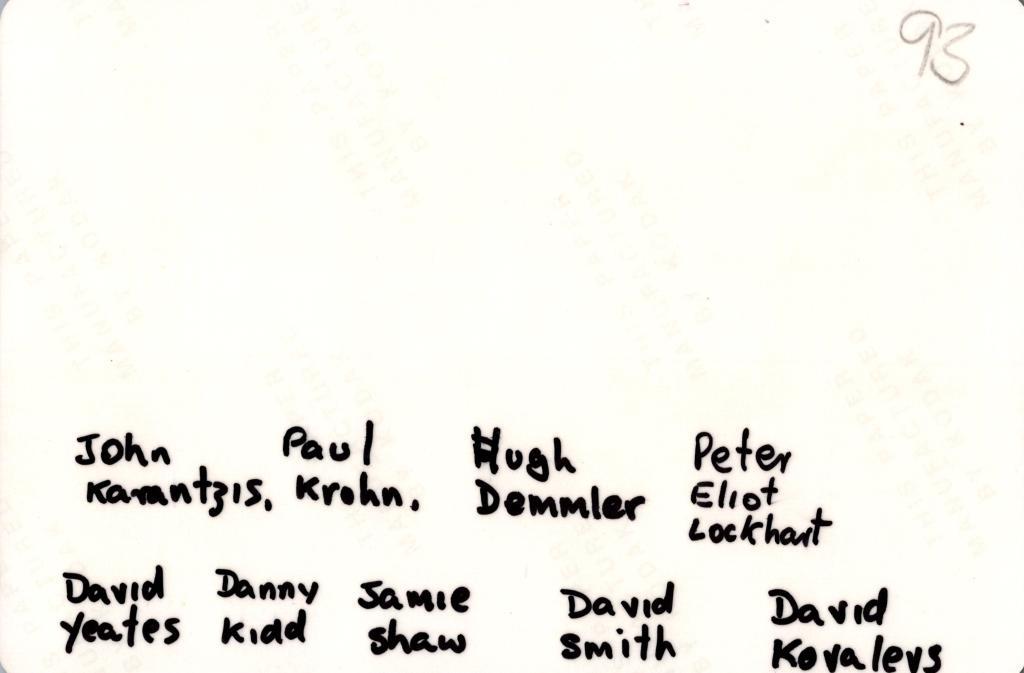 93
John Paul Hugh Peter
Karantzis. Krohn. Demmler Eliot
Lockhart
David Danny Jamie David David
Yeates Kidd Shaw Smith Kovalevs
THIS PAPER
MANUFACTURED
BY KODAK